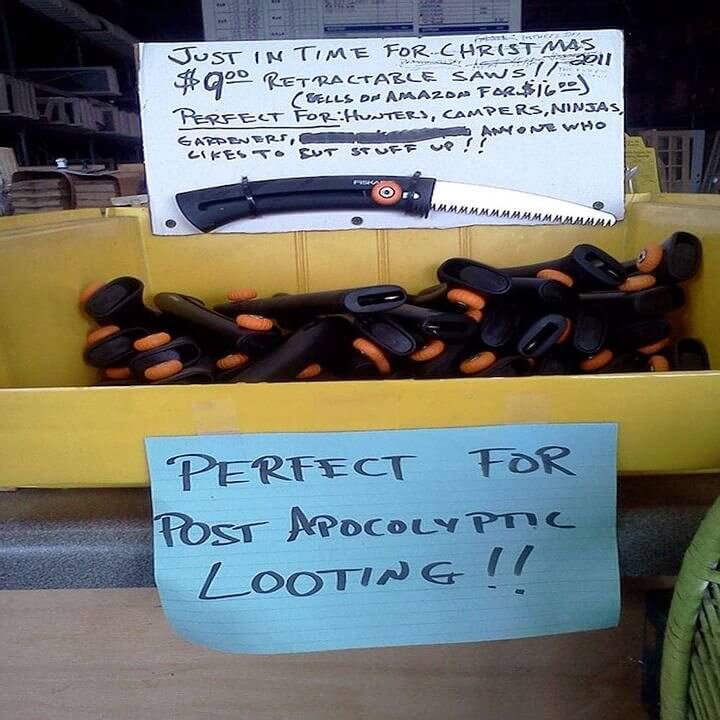 JUST IN TIME FOR CHRISTMAS
2011
$9.00 RETRACTABLE SAWS!!
(SELLS ON AMAZON FOR $16.00)
PERFECT FOR: HUNTERS, CAMPERS, NINJAS,
GARDENERS, ANYONE WHO
LIKES TO CUT STUFF UP!!
FISKA
PERFECT FOR
POST APOCOLYPTIC
LOOTING!!